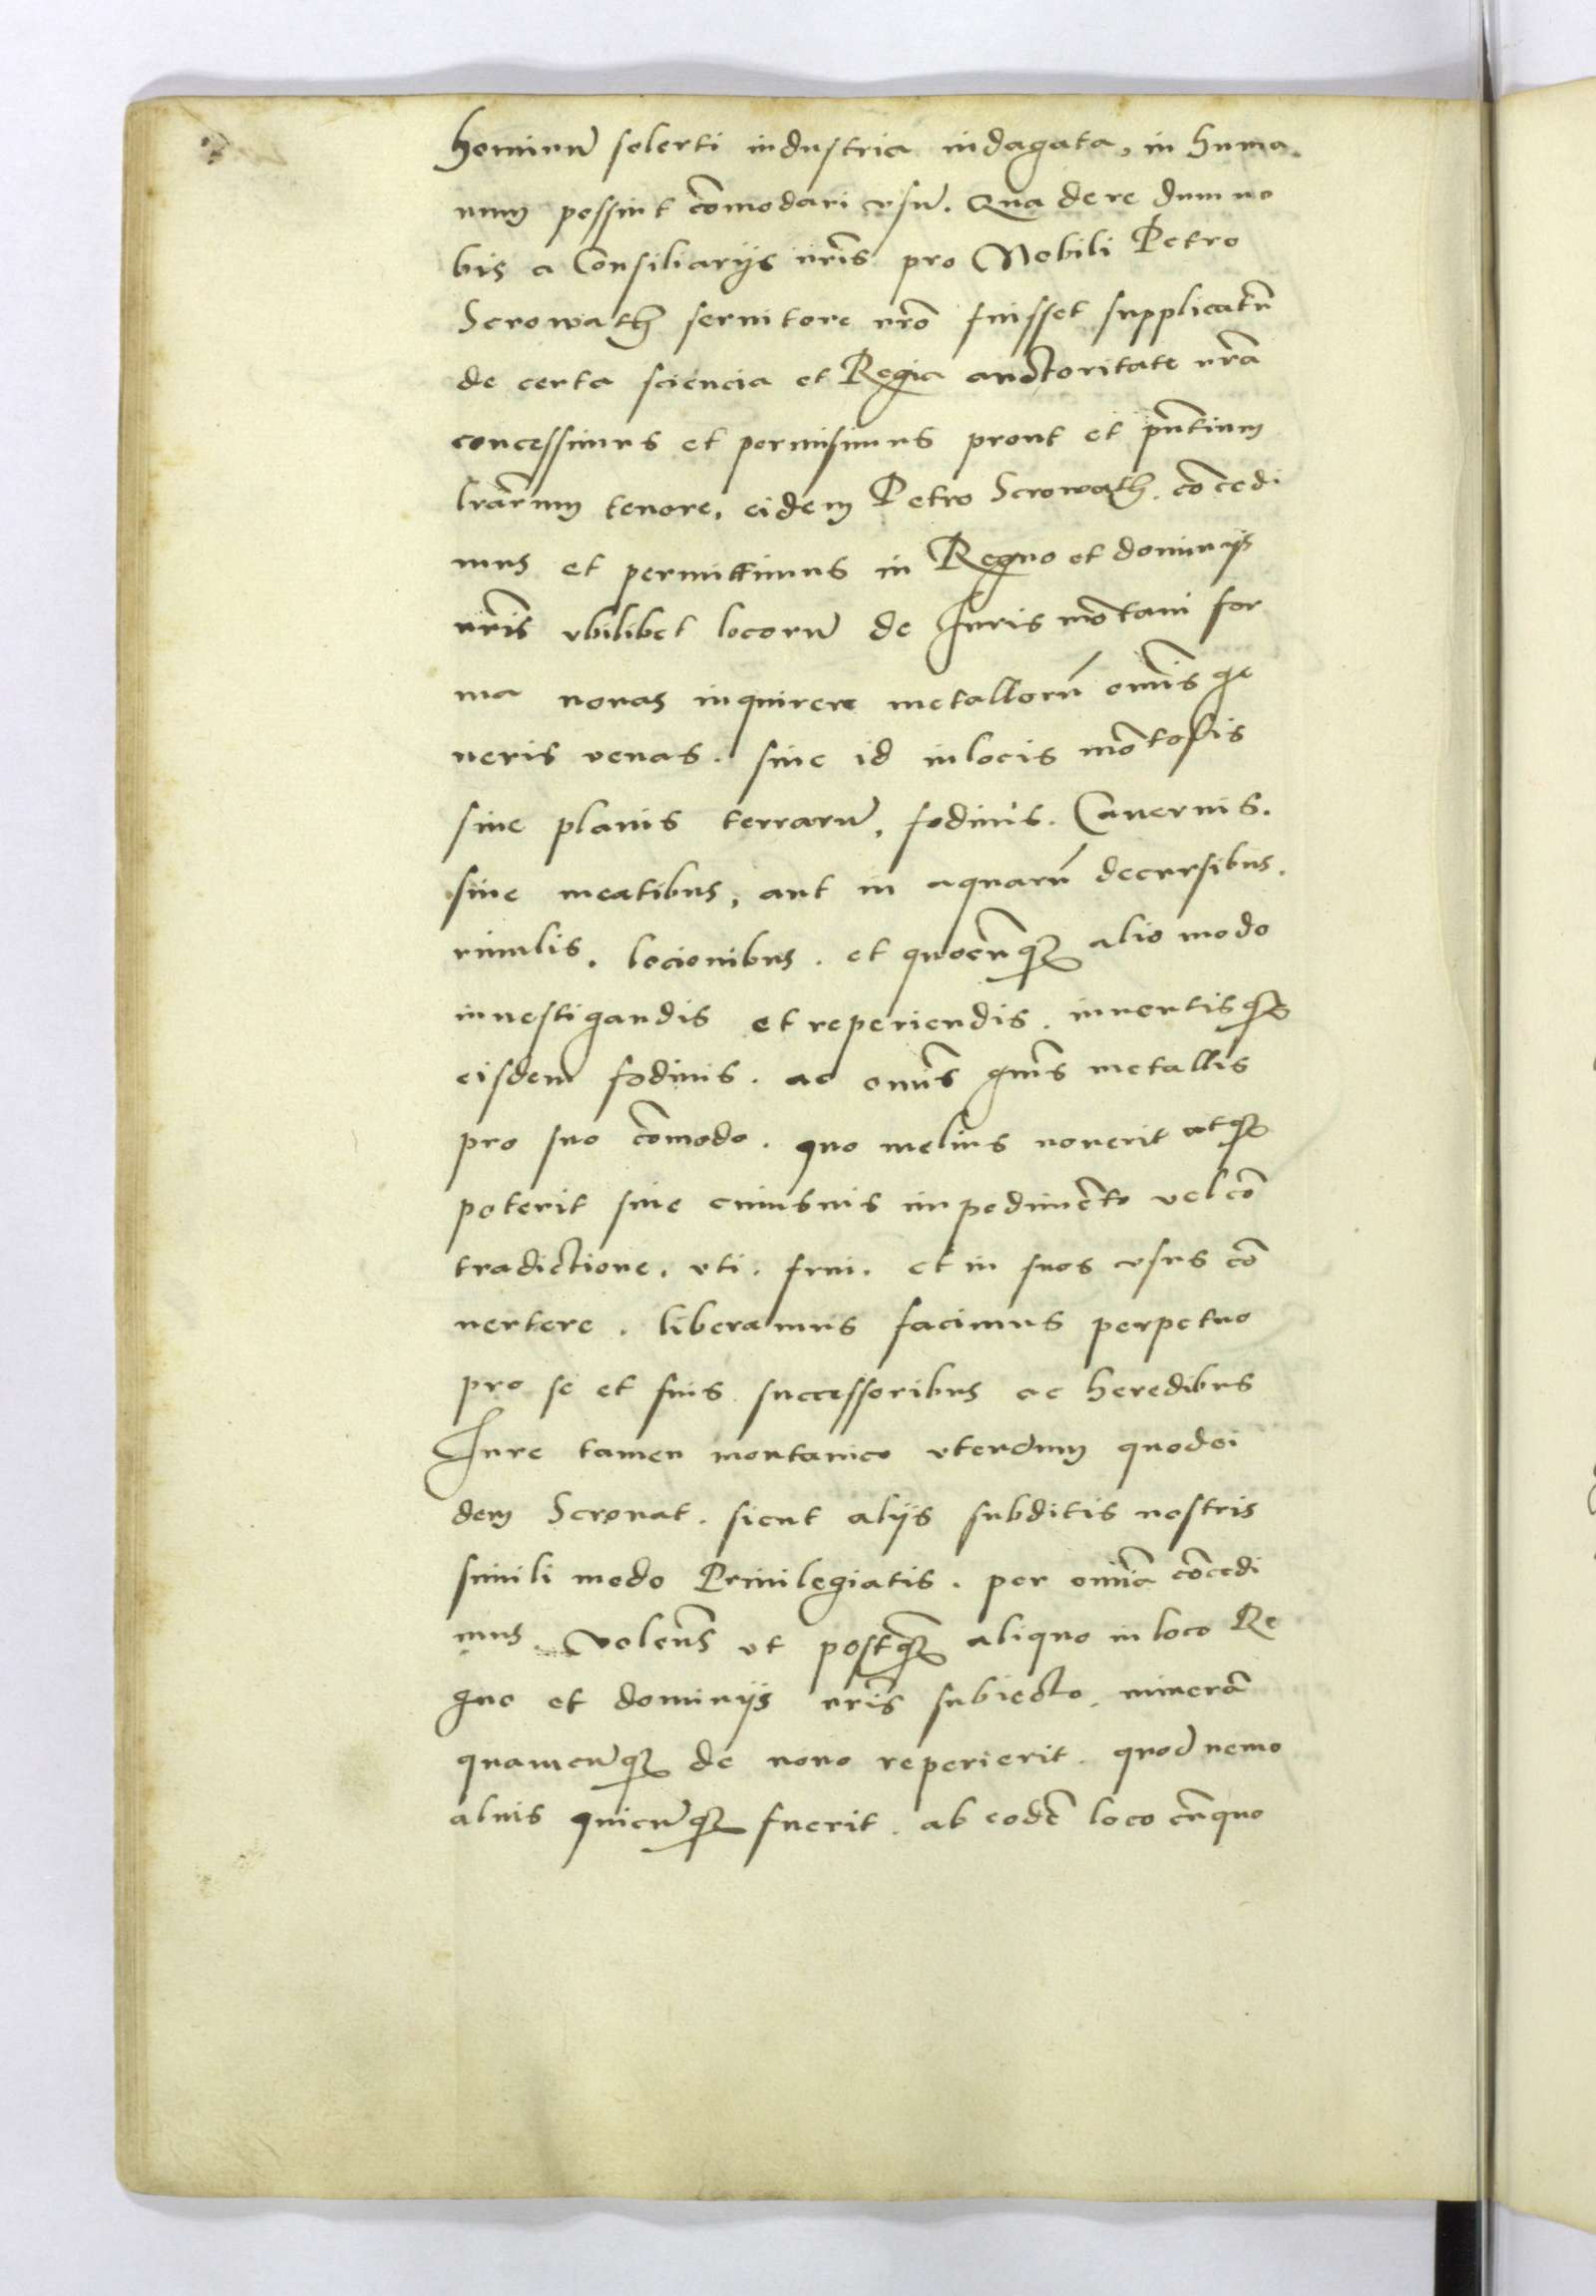 hominū solerti industria indagata, in huma.
num possint cōmodari vsū. Qua de re dum no
bis a Consiliarijs nr̄is pro Nobili Petro
Scrowath seruitore nr̄o fuisset supplicatū
de certa sciencia et Regia auctoritate nr̄a
concessimus et permisimus prout et pn̄tium
lr̄arum tenore, eidem Petro Scrowath. cōcedi
mus et permittimus in Regno et dominijs
nr̄is vbilibet locorū de Iuris mōtani for
ma nouas inquirere metallorū omīs ge
neris venas. siue id in locis mōtosis
siue planis terrarū, fodinis. Cauernis.
siue meatibus, aut in aquarū decursibus.
riuulis. locionibus. et quocūqȝ alio modo
inuestigandis et reperiendis. inuentisqȝ
eisdem fodinis. ac omīs gn̄is metallis
pro suo cōmodo. quo melius nouerit atqȝ
poterit sine cuiusuis impedimēto vel cō
tradictione. vti. frui. et in suos vsus cō
uertere. liberamus facimus perpetuo
pro se et suis successoribus ac heredibus
Iure tamen montanico vtendum quod ei
dem Scrouat. sicut alijs subditis nostris
simili modo Priuilegiatis. per omīa cōcedi
mus. volen̄s vt postqȝ aliquo in loco Re
gno et dominijs nr̄is subiecto. minerā
quamcūqȝ de nouo reperierit. quod nemo
aluis quicūqȝ fuerit. ab eodē loco cūquo